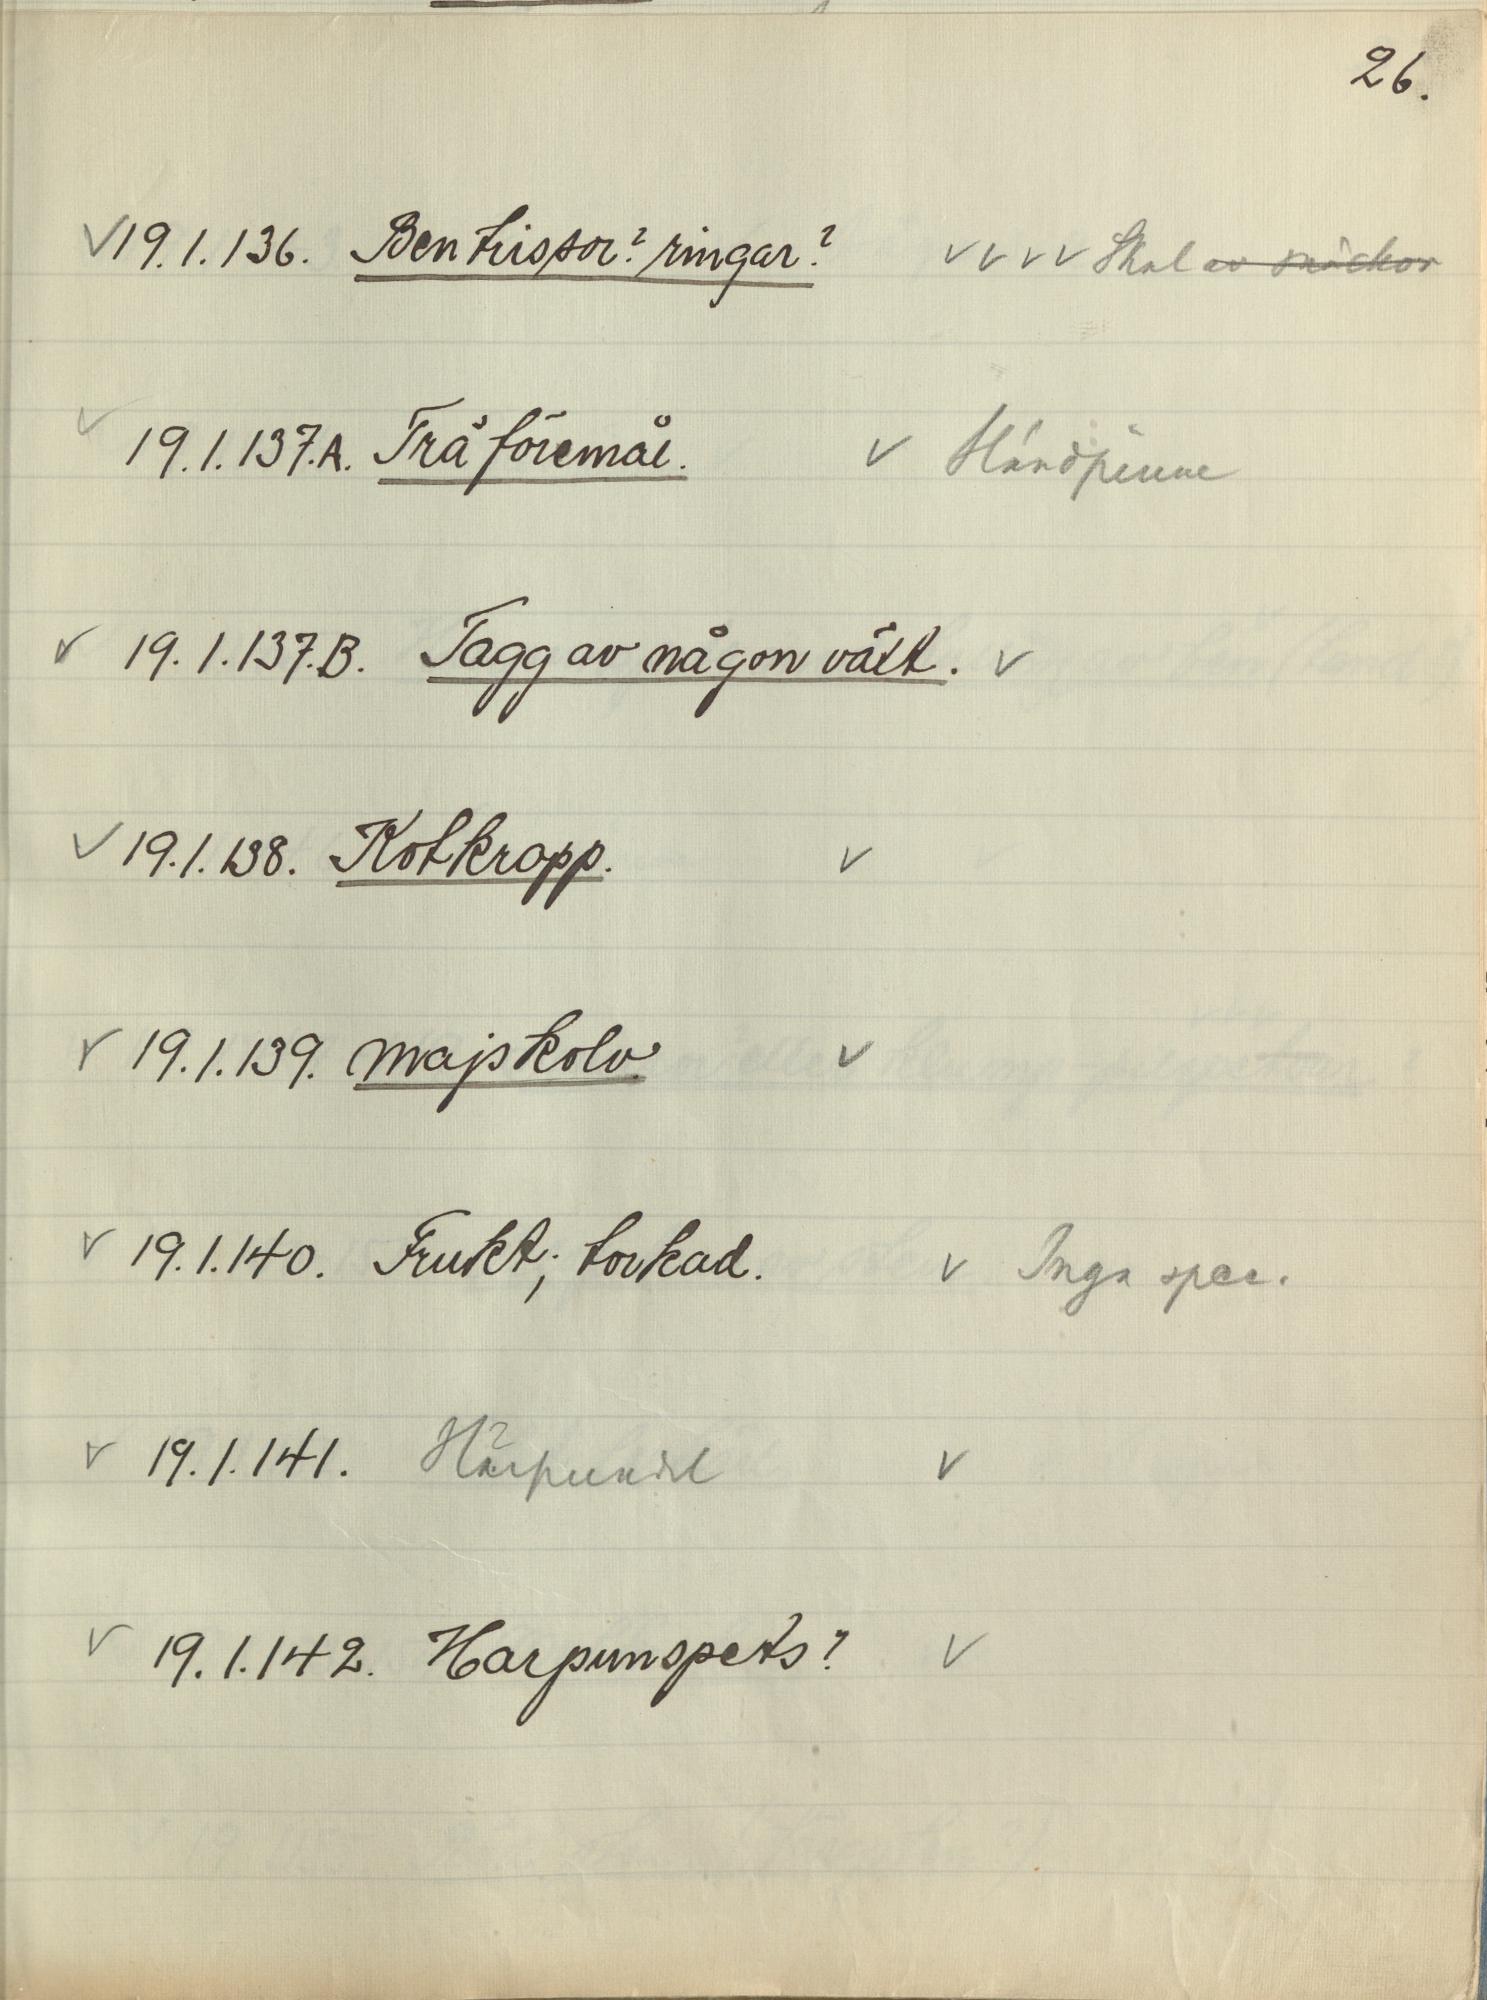 26.
✓ 19.1.136. Bentrissor? ringar? ✓ ✓ ✓ ✓ Skal av snäckor
✓ 19.1.137.A. Träföremål. ✓ Eldpinne
✓ 19.1.137.B. Tagg av någon växt. ✓
✓ 19.1.138. Kotkropp. ✓
✓ 19.1.139. Majskolv. ✓
✓ 19.1.140. Frukt; torkad. ✓ Inga spec.
✓ 19.1.141. ✓
✓ 19.1.142. Harpunspets? ✓